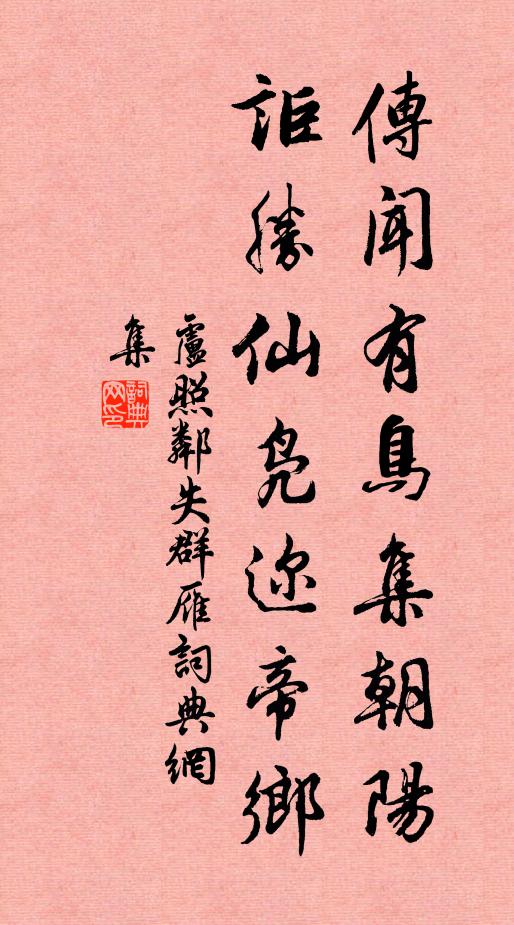 傳聞有鳥集朝陽
詎勝仙鳧迩帝鄉
盧照鄰失群雁詞典網
集
詞典網印